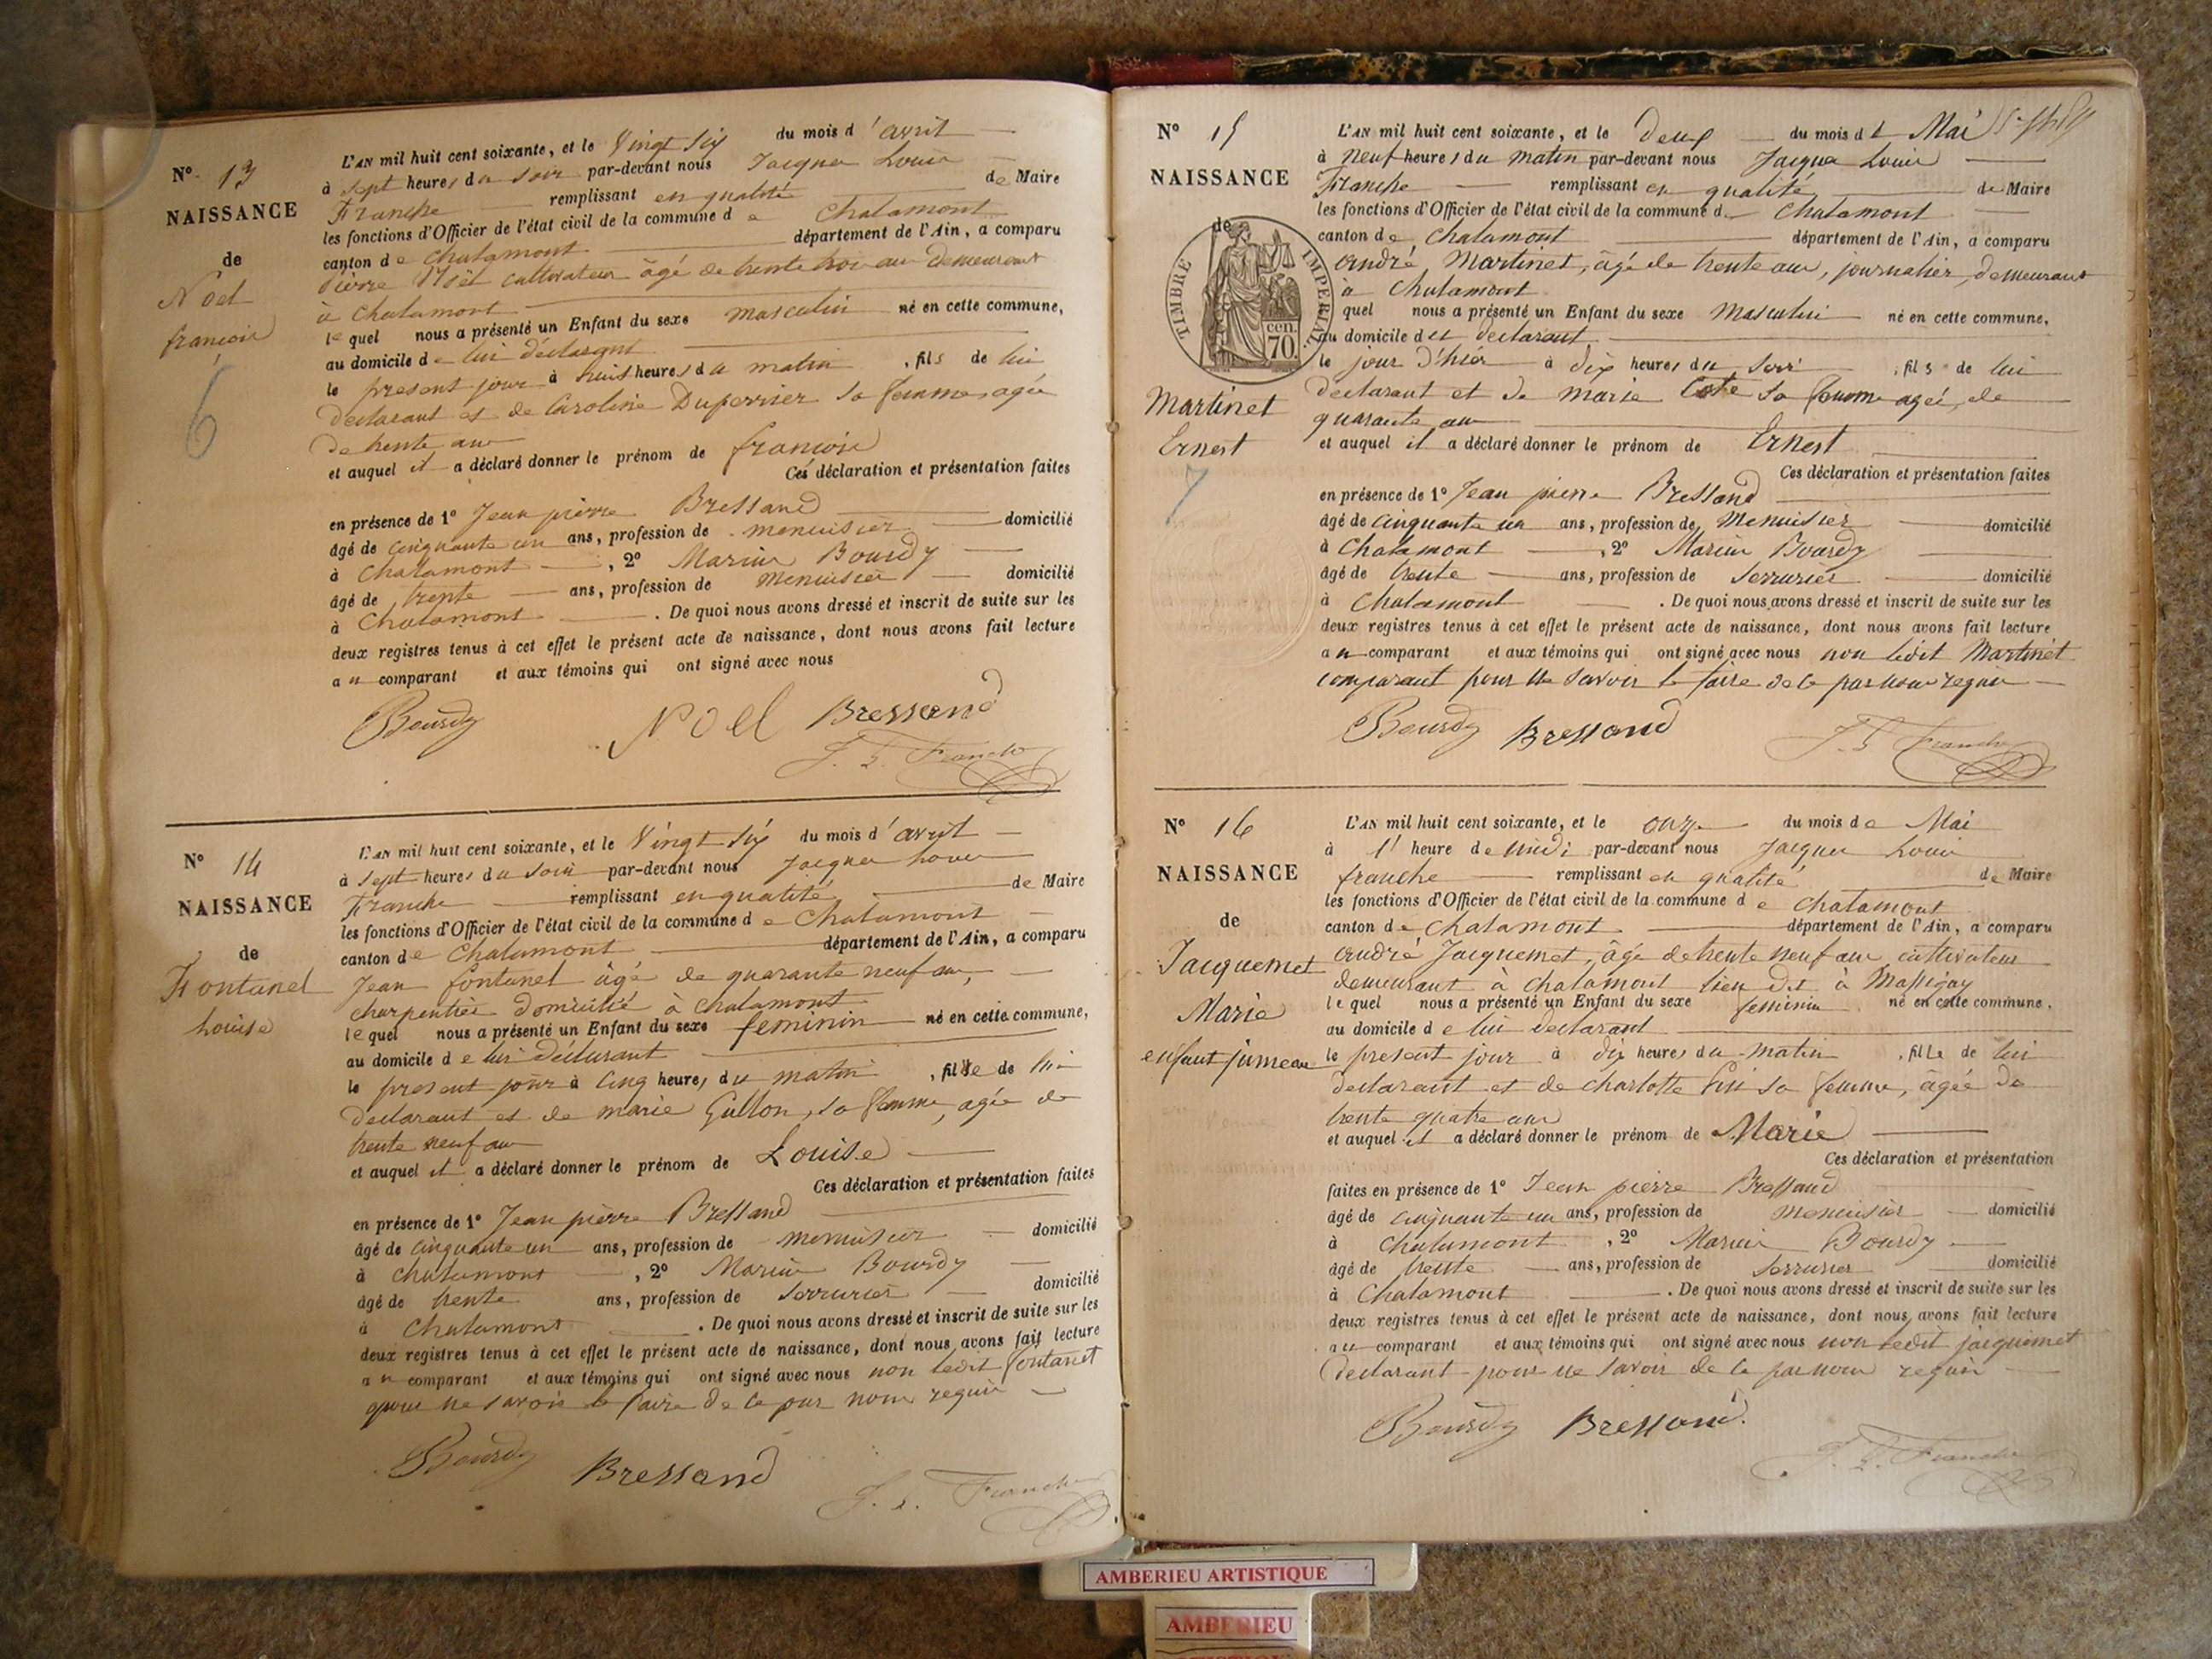 N° 13
NAISSANCE
de
Noël
françois
6
L'AN mil huit cent soixante, et le Vingt Six du mois d'avril
à sept heures du soir par-devant nous Jacques Louis
Franche remplissant en qualité de Maire
les fonctions d'Officier de l'état civil de la commune de Chalamont
canton de Chalamont département de l'Ain, a comparu
Pierre Noël cultivateur âgé de trente trois ans demeurant
à Chalamont
le quel nous a présenté un Enfant du sexe masculin né en cette commune,
au domicile de lui déclarant
le présent jour à huit heures du matin, fils de lui
déclarant et de Caroline Duperrier sa femme, agée
de trente ans
et auquel il a déclaré donner le prénom de françois
Ces déclaration et présentation faites
en présence de 1° Jean pierre Bressand
âgé de cinquante un ans, profession de menuisier domicilié
à Chalamont, 2° Marius Bourdy
âgé de trente ans, profession de menuisier domicilié
à Chalamont. De quoi nous avons dressé et inscrit de suite sur les
deux registres tenus à cet effet le présent acte de naissance, dont nous avons fait lecture
au comparant et aux témoins qui ont signé avec nous
Bourdy Noel Bressand
J. L. Franche
N° 14
NAISSANCE
de
Fontanel
Louise
L'AN mil huit cent soixante, et le Vingt Six du mois d'avril
à sept heures du soir par-devant nous Jacques Louis
Franche remplissant en qualité de Maire
les fonctions d'Officier de l'état civil de la commune de Chalamont
canton de Chalamont département de l'Ain, a comparu
Jean fontanel âgé de quarante neuf ans,
charpentier domicilié à Chalamont
le quel nous a présenté un Enfant du sexe feminin né en cette commune,
au domicile de lui déclarant
le present jour à cinq heures du matin, fille de lui
déclarant et de marie Gullon, sa femme, agée de
trente neuf ans
et auquel il a déclaré donner le prénom de Louise
Ces déclaration et présentation faites
en présence de 1° Jean pierre Bressand
âgé de cinquante un ans, profession de menuisier domicilié
à Chalamont, 2° Marius Bourdy
âgé de trente ans, profession de serrurier domicilié
à Chalamont. De quoi nous avons dressé et inscrit de suite sur les
deux registres tenus à cet effet le présent acte de naissance, dont nous avons fait lecture
au comparant et aux témoins qui ont signé avec nous non ledit fontanel
pour ne savoir le faire de ce par nous requis
Bourdy Bressand
J. L. Franche
N° 15
NAISSANCE
de
TIMBRE IMPERIAL
70 cen.
Martinet
Ernest
7
L'AN mil huit cent soixante, et le deux du mois de Mai
à neuf heures du matin par-devant nous Jacques Louis
Franche remplissant en qualité de Maire
les fonctions d'Officier de l'état civil de la commune d Chalamont
canton de Chalamont département de l'Ain, a comparu
andré Martinet, âgé de trente ans, journalier, demeurant
à Chalamont
quel nous a présenté un Enfant du sexe masculin né en cette commune,
au domicile du declarant
le jour d'hier à dix heures du soir, fils de lui
declarant et de marie Cote sa femme agée, de
quarante ans
et auquel il a déclaré donner le prénom de Ernest
Ces déclaration et présentation faites
en présence de 1° Jean pierre Bressand
âgé de cinquante un ans, profession de Menuisier domicilié
à Chalamont, 2° Marius Bourdy
âgé de trente ans, profession de serrurier domicilié
à Chalamont. De quoi nous avons dressé et inscrit de suite sur les
deux registres tenus à cet effet le présent acte de naissance, dont nous avons fait lecture
au comparant et aux témoins qui ont signé avec nous non ledit Martinet
comparant pour ne savoir le faire de ce par nous requis
Bourdy Bressand
J. L. Franche
N° 16
NAISSANCE
de
Jacquemet
Marie
enfant jumeau
L'AN mil huit cent soixante, et le onze du mois de Mai
à 1' heure de midi par-devant nous Jacques Louis
franche remplissant en qualité de Maire
les fonctions d'Officier de l'état civil de la commune de Chalamont
canton de Chalamont département de l'Ain, a comparu
andré Jacquemet, âgé de trente neuf ans cultivateur
demeurant à Chalamont lieu dit à Massigay
le quel nous a présenté un Enfant du sexe feminin né en cette commune,
au domicile de lui declarant
le présent jour à dix heures du matin, fille de lui
declarant et de charlotte sa femme, âgée de
trente quatre ans
et auquel il a déclaré donner le prénom de Marie
Ces déclaration et présentation
faites en présence de 1° Jean pierre Bressand
âgé de cinquante un ans, profession de menuisier domicilié
à Chalamont, 2° Marius Bourdy
âgé de trente ans, profession de serrurier domicilié
à Chalamont. De quoi nous avons dressé et inscrit de suite sur les
deux registres tenus à cet effet le présent acte de naissance, dont nous avons fait lecture
au comparant et aux témoins qui ont signé avec nous non ledit jacquemet
declarant pour ne savoir de ce par nous requis
Bourdy Bressand
J. L. Franche
AMBERIEU ARTISTIQUE
AMBERIEU